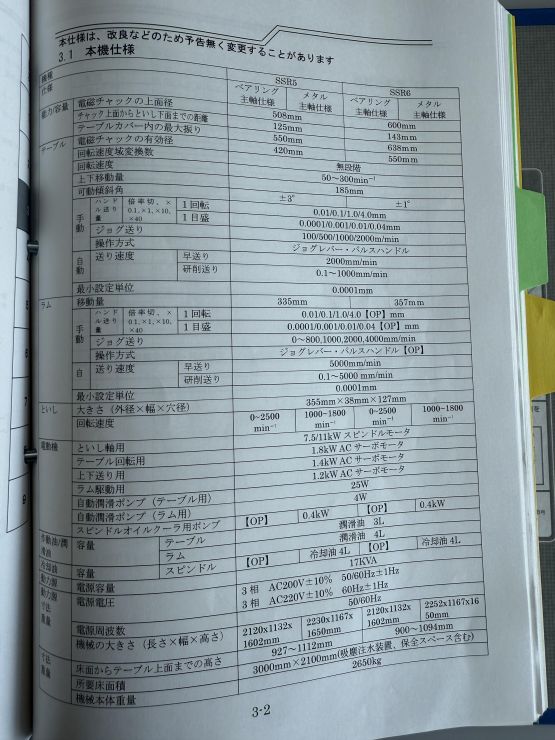 本仕様は、改良などのため予告無く変更することがあります
3.1 本機仕様
機種 SSR5 SSR6
仕様 ベアリング主軸仕様 メタル主軸仕様 ベアリング主軸仕様 メタル主軸仕様
能力/容量 電磁チャックの上面径 508mm 600mm
チャック上面からといし下面までの距離 125mm 143mm
テーブルカバー内の最大振り 550mm 638mm
テーブル 電磁チャックの有効径 420mm 550mm
回転速度域変換数 無段階
回転速度 50～300min⁻¹
上下移動量 185mm
可動傾斜角 ±3° ±1°
手動 ハンドル送り量 倍率切、×0.1、×1、×10、×40 1回転 0.01/0.1/1.0/4.0mm
1目盛 0.0001/0.001/0.01/0.04mm
ジョグ送り 100/500/1000/2000m/min
操作方式 ジョグレバー・パルスハンドル
自動 送り速度 早送り 2000mm/min
研削送り 0.1～1000mm/min
最小設定単位 0.0001mm
ラム 移動量 335mm 357mm
手動 ハンドル送り量 倍率切、×0.1、×1、×10、×40 1回転 0.01/0.1/1.0/4.0【OP】mm
1目盛 0.0001/0.001/0.01/0.04【OP】mm
ジョグ送り 0～800,1000,2000,4000mm/min
操作方式 ジョグレバー・パルスハンドル【OP】
自 送り速度 早送り 5000mm/min
研削送り 0.1～5000 mm/min
最小設定単位 0.0001mm
といし 大きさ（外径×幅×穴径） 355mm×38mm×127mm
回転速度 0~2500 min⁻¹ 1000~1800 min⁻¹ 0~2500 min⁻¹ 1000~1800 min⁻¹
電動機 といし軸用 7.5/11kW スピンドルモータ
テーブル回転用 1.8kW AC サーボモータ
上下送り用 1.4kW AC サーボモータ
ラム駆動用 1.2kW AC サーボモータ
自動潤滑ポンプ（テーブル用） 25W
自動潤滑ポンプ（ラム用） 4W
スピンドルオイルクーラ用ポンプ 【OP】 0.4kW 【OP】 0.4kW
作動油/潤滑油 容量 テーブル 潤滑油 3L
ラム 潤滑油 4L
冷却油 容量 スピンドル 【OP】 冷却油 4L 【OP】 冷却油 4L
動力源 電源容量 17KVA
電源電圧 3 相 AC200V±10% 50/60Hz±1Hz
3 相 AC220V±10% 60Hz±1Hz
電源周波数 50/60Hz
機械の大きさ（長さ×幅×高さ） 2120x1132x1602mm 2230x1167x1650mm 2120x1132x1602mm 2252x1167x1650mm
寸法 重量 床面からテーブル上面までの高さ 927～1112mm 900～1094mm
所要床面積 3000mm×2100mm(吸塵注水装置、保全スペース含む)
機械本体重量 2650kg
3-2